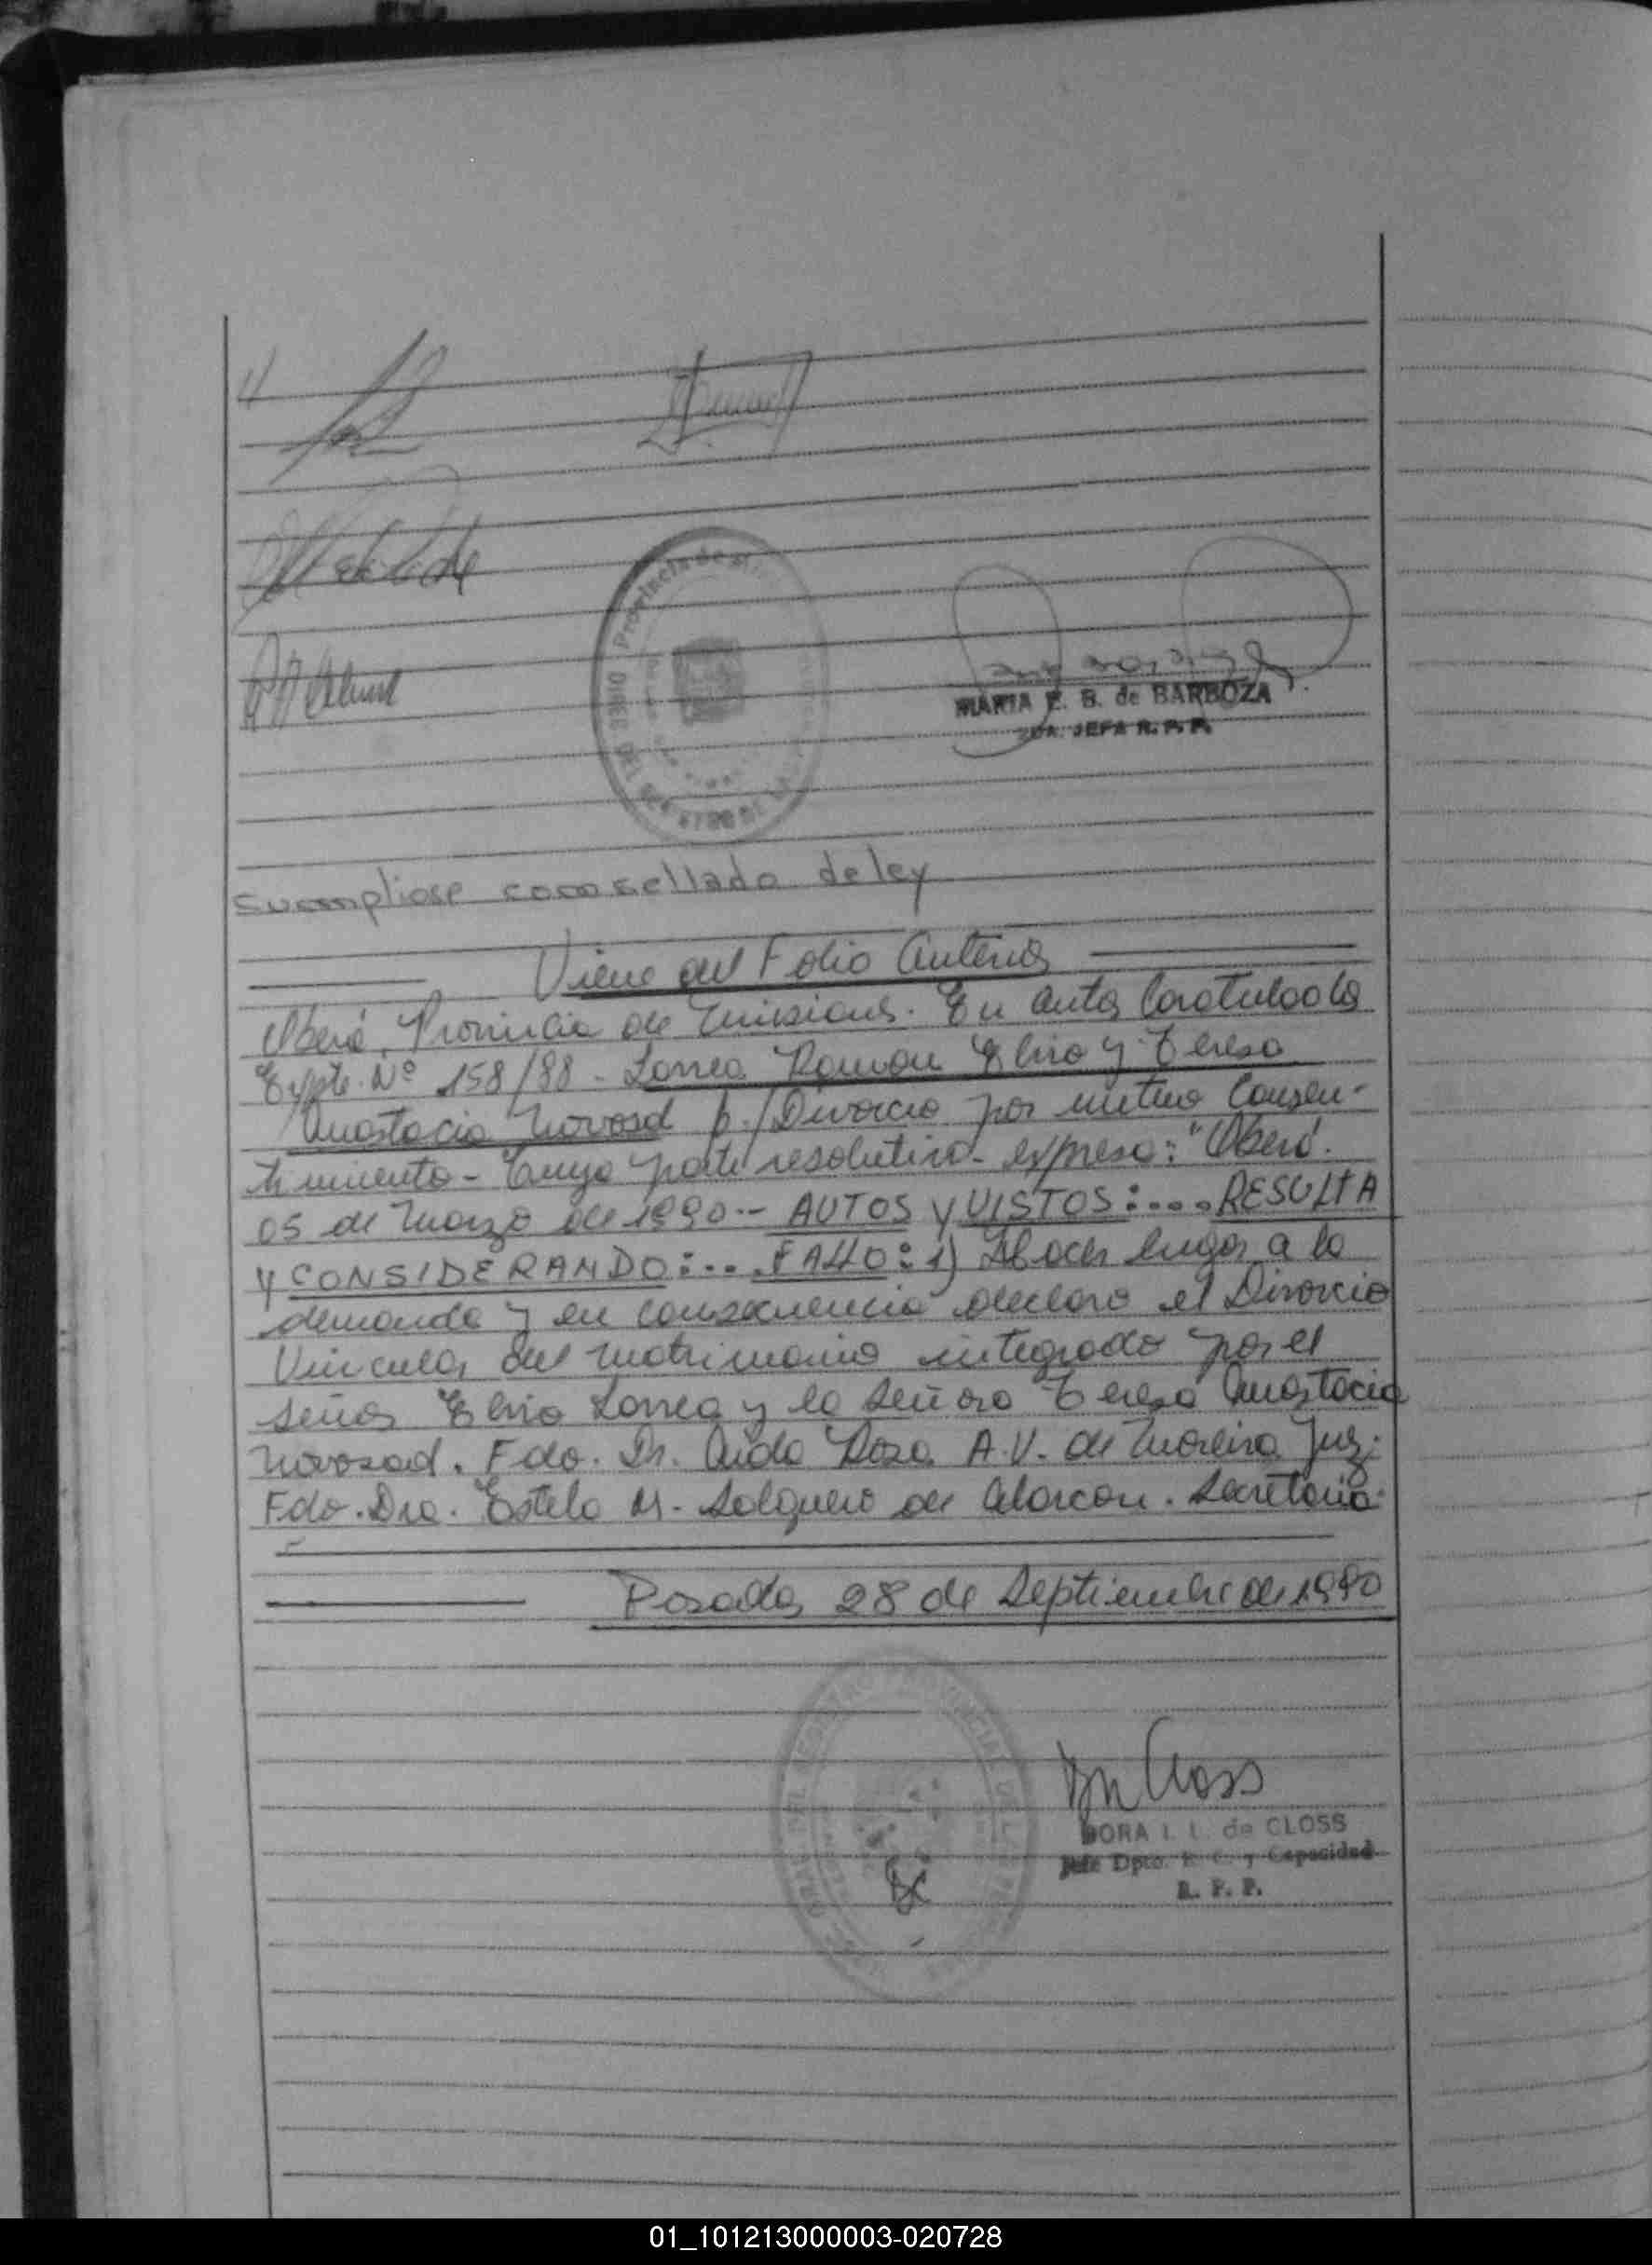 Provincia de
DIREC
MARIA E. B. de BARBOZA
2DA. JEFA R. P. P.
Sucompliose con sellado de ley
Viene del Folio Anterior
Oberá, Provincia de Misiones. En autos Caratulados
Expte. Nº 158/88 - Lorrea Ramon Elvio y Teresa
Anastacia Novosad p./Divorcio por mutuo Consen-
timiento - Cuya parte resolutiva expresa: "Oberá.
05 de Marzo de 1990.- AUTOS y VISTOS:.... RESULTA
y CONSIDERANDO:... FALLO: 1) Hacer lugar a la
demanda y en consecuencia declaro el Divorcio
Vincular del matrimonio integrado por el
señor Elvio Lorrea y la Señora Teresa Anastacia
Novosad. Fdo. Dr. Aida Rosa A.V. de Moreira Juez.
Fdo. Dra. Estela M. Salguero de Alarcon. Secretaria.
Posadas, 28 de Septiembre de 1990
DORA I. L. de CLOSS
Jefe Dpto. E. C. y Capacidad
R. P. P.
01_101213000003-020728